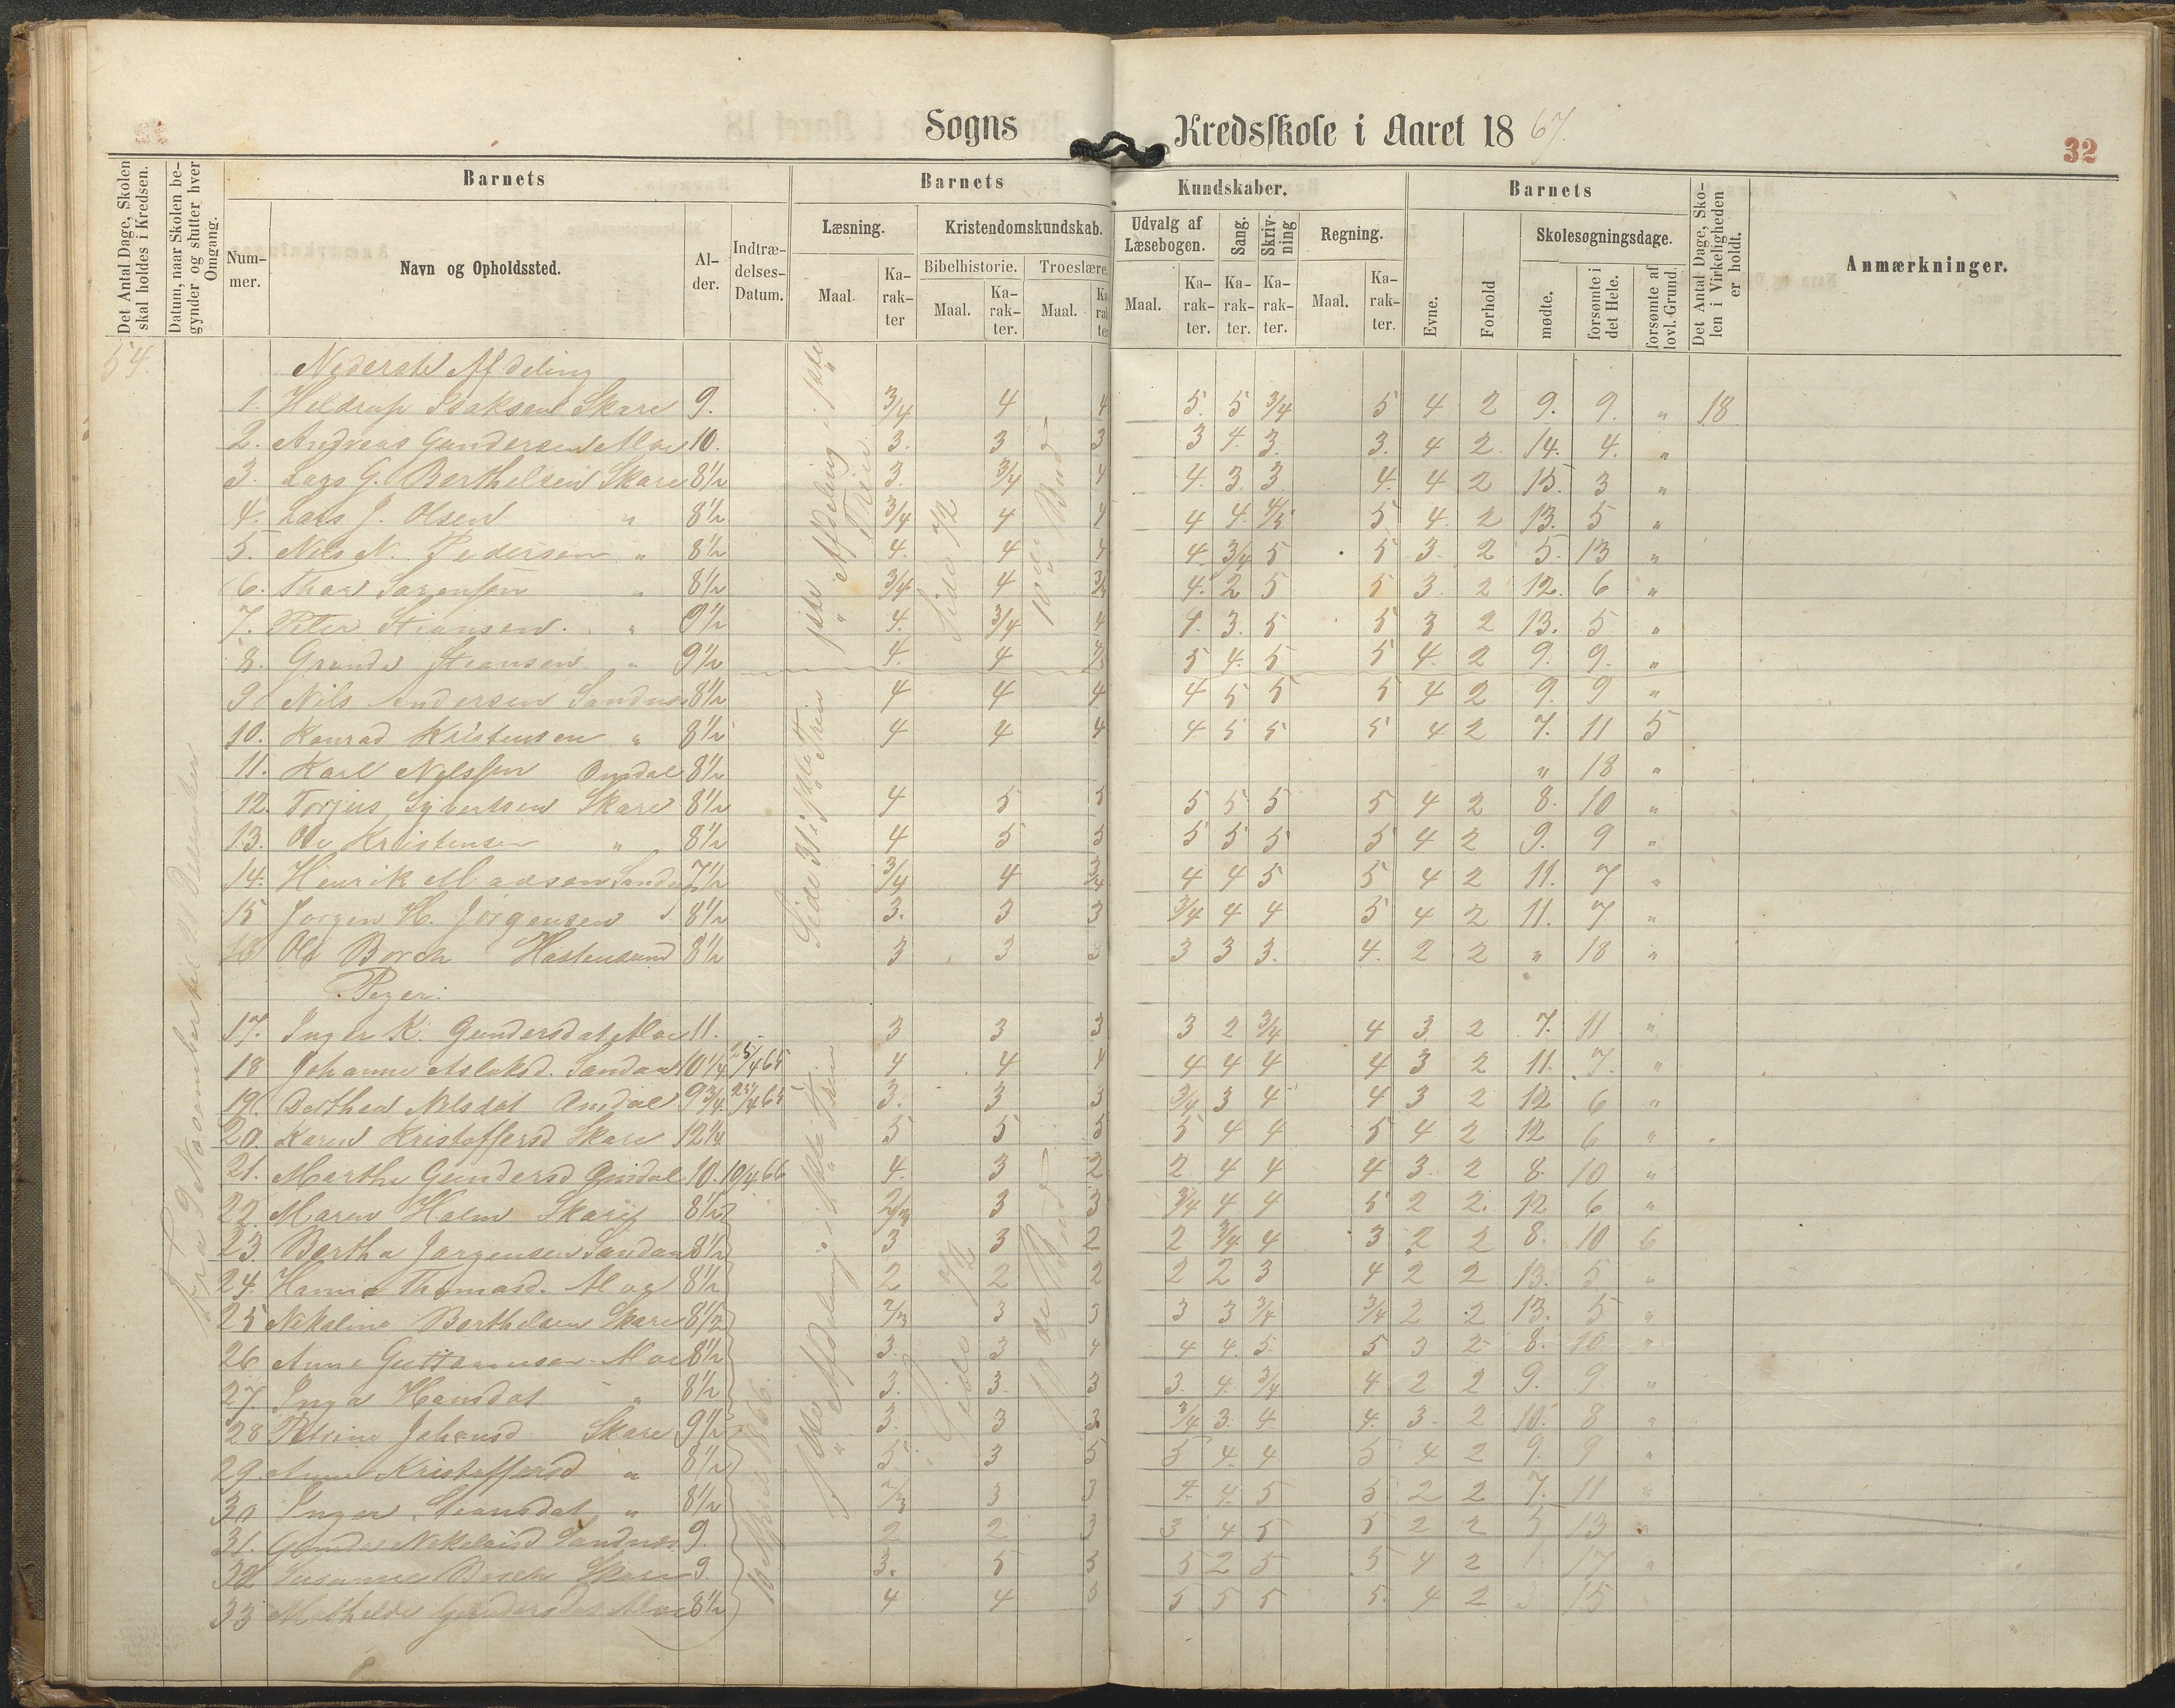 Sogns Kredsskole i Aaret 1867.
32
Det Antal Dage, Skolen skal holdes i Kredsen.
Datum, naar Skolen begynder og slutter hver Omgang.
Barnets
Nummer.
Navn og Opholdssted.
Alder.
Indtrædelses-Datum.
Barnets Kundskaber.
Læsning.
Maal.
Karakter
Kristendomskundskab.
Bibelhistorie.
Maal.
Karakter.
Troeslære.
Maal.
Udvalg af Læsebogen.
Maal.
Karakter.
Sang.
Karakter.
Skrivning
Karakter.
Regning.
Maal.
Karakter.
Barnets
Evne.
Forhold
Skolesøgningsdage.
mødte.
forsømte i det Hele.
forsømte af lovl. Grund.
Det Antal Dage, Skolen i Virkeligheden er holdt.
Anmærkninger.
54.
Nederste Afdeling
1. Heldrup Isaksen Skare 9. 3/4 4 4 5. 5 3/4 5 4 2 9. 9. " 18
2. Andreas Gundersen Moe 10. 3. 3 3 3 4. 3. 3. 4 2. 14. 4. "
3. Lars G. Berthelsen Skare 8 1/2 3. 3/4 4 4. 3. 3 4. 4 2 15. 3 "
4. Lars J. Olsen " 8 1/2 3/4 4 4 4 4. 4/5 5 4. 2 13. 5 "
5. Nels N. Pedersen " 8 1/2 4. 4 4 4. 3/4 5 5 3. 2 5. 13 "
6. Thor Sørensen " 8 1/2 3/4 4 3/4 4. 2 5 5 3. 2 12. 6 "
7. Peter Stiansen " 9 1/2 4. 3/4 4 4. 3. 5 5 3 2 13. 5 "
8. Stiansen " 9 1/2 4. 4 5 4. 5 5 4. 2 9. 9. "
9 Nils Andersen Sandnes 8 1/2 4 4 4 4 5 5 5 4 2 9. 9 "
10. Konrad Kristensen " 8 1/2 4 4 4 4 5 5 5 4 2 7. 11 5
11. Karl Nelssen Omdal 8 1/2 " 18 "
12. Torjus Syvertsen Skare 8 1/2 4 5 5 5 5 5 5 4 2 8. 10 "
13. Ole Kristensen " 8 1/2 4 5 5 5 5 5 5 4 2 9. 9 "
14. Henrik Madsen Sandnes 7 1/2 3/4 4 3/4 4 4 5 5 4 2 11. 7 "
15 Jørgen H. Jörgensen 8 1/2 3. 3 3 3/4 4 4 5 4 2 11. 7 "
16 Ole Borch Hastensund 8 1/2 3 3 3 3 3 3. 4. 2 2 " 18 "
Piger.
17. Inger K. Gundersdat Moe 11. 3 3 3 3 2 3/4 4 3 2 7. 11 "
18 Johanne Aslaksd. Sandnes 10 1/4 25/4 65 4 4 4 4 4 4 4 3 2 11. 7. "
19. Berthea Nelsdat Omdal 9 3/4 25/4 65 3. 3 3 3/4 3 4 4 3 2 12 6 "
20. Karen Kristoffersd Skare 12 1/4 5 5 5 5 4 4 5 4 2 12 6 "
21. Marthe Gundersd Omdal 10. 10/4 66 4. 3 2 2 4 4 4 3. 2 8. 10 "
22. Maren Holm Skare 8 1/2 2/3 3 3 3/4 4 4 5 2 2. 12 6 "
23. Bertha Jørgensen Sandnes 8 1/2 3 3 2 2 3/4 4 3 2 2 8. 10 6
24. Hanna Thomasd. Moe 8 1/2 2 2 2 2 2 3 4 2 2 13. 5 "
25 Nikoline Berthelsen Skare 8 1/2 2/3 3 3 3 3 3/4 3/4 2 2 13. 5 "
26 Anne Guttormsen Moe 8 1/2 3. 3 4 4 4. 5 5 3 2 8. 10 "
27. Inga Hansdat " 8 1/2 3. 3. 3 3. 4. 3/4 4 2 2 9. 9. "
28 Petrine Johansd Skare 9 1/2 3. 3 3 3/4 3. 4 4. 3. 2 10. 8 "
29. Anne Kristoffersd " 8 1/2 5. 3 5 5 4. 4 5 4 2 9. 9 "
30 Inger Stiansdat " 8 1/2 2/3 3 3 4. 4. 5 5 2 2 7. 11 "
31. Nikolaisd Sandnes 9. 2 2 3 3 4 5 5 2 2 5 13 "
32 Susanne Borch Skare 9 3. 5 5 5 2 5 5 4 2 1. 17 "
33 Mathilde Gundersdat Moe 8 1/2 4 4 5 5 5 5 5. 4 2 3 15
Fra 9 November til 21 December
1ste Afdeling i 1ste Trin
Side 72
10de Bud
Side 31 i 1ste Trin
1ste Afdeling i 1ste Trin
Side 72
10de Bud
10 April 1866.